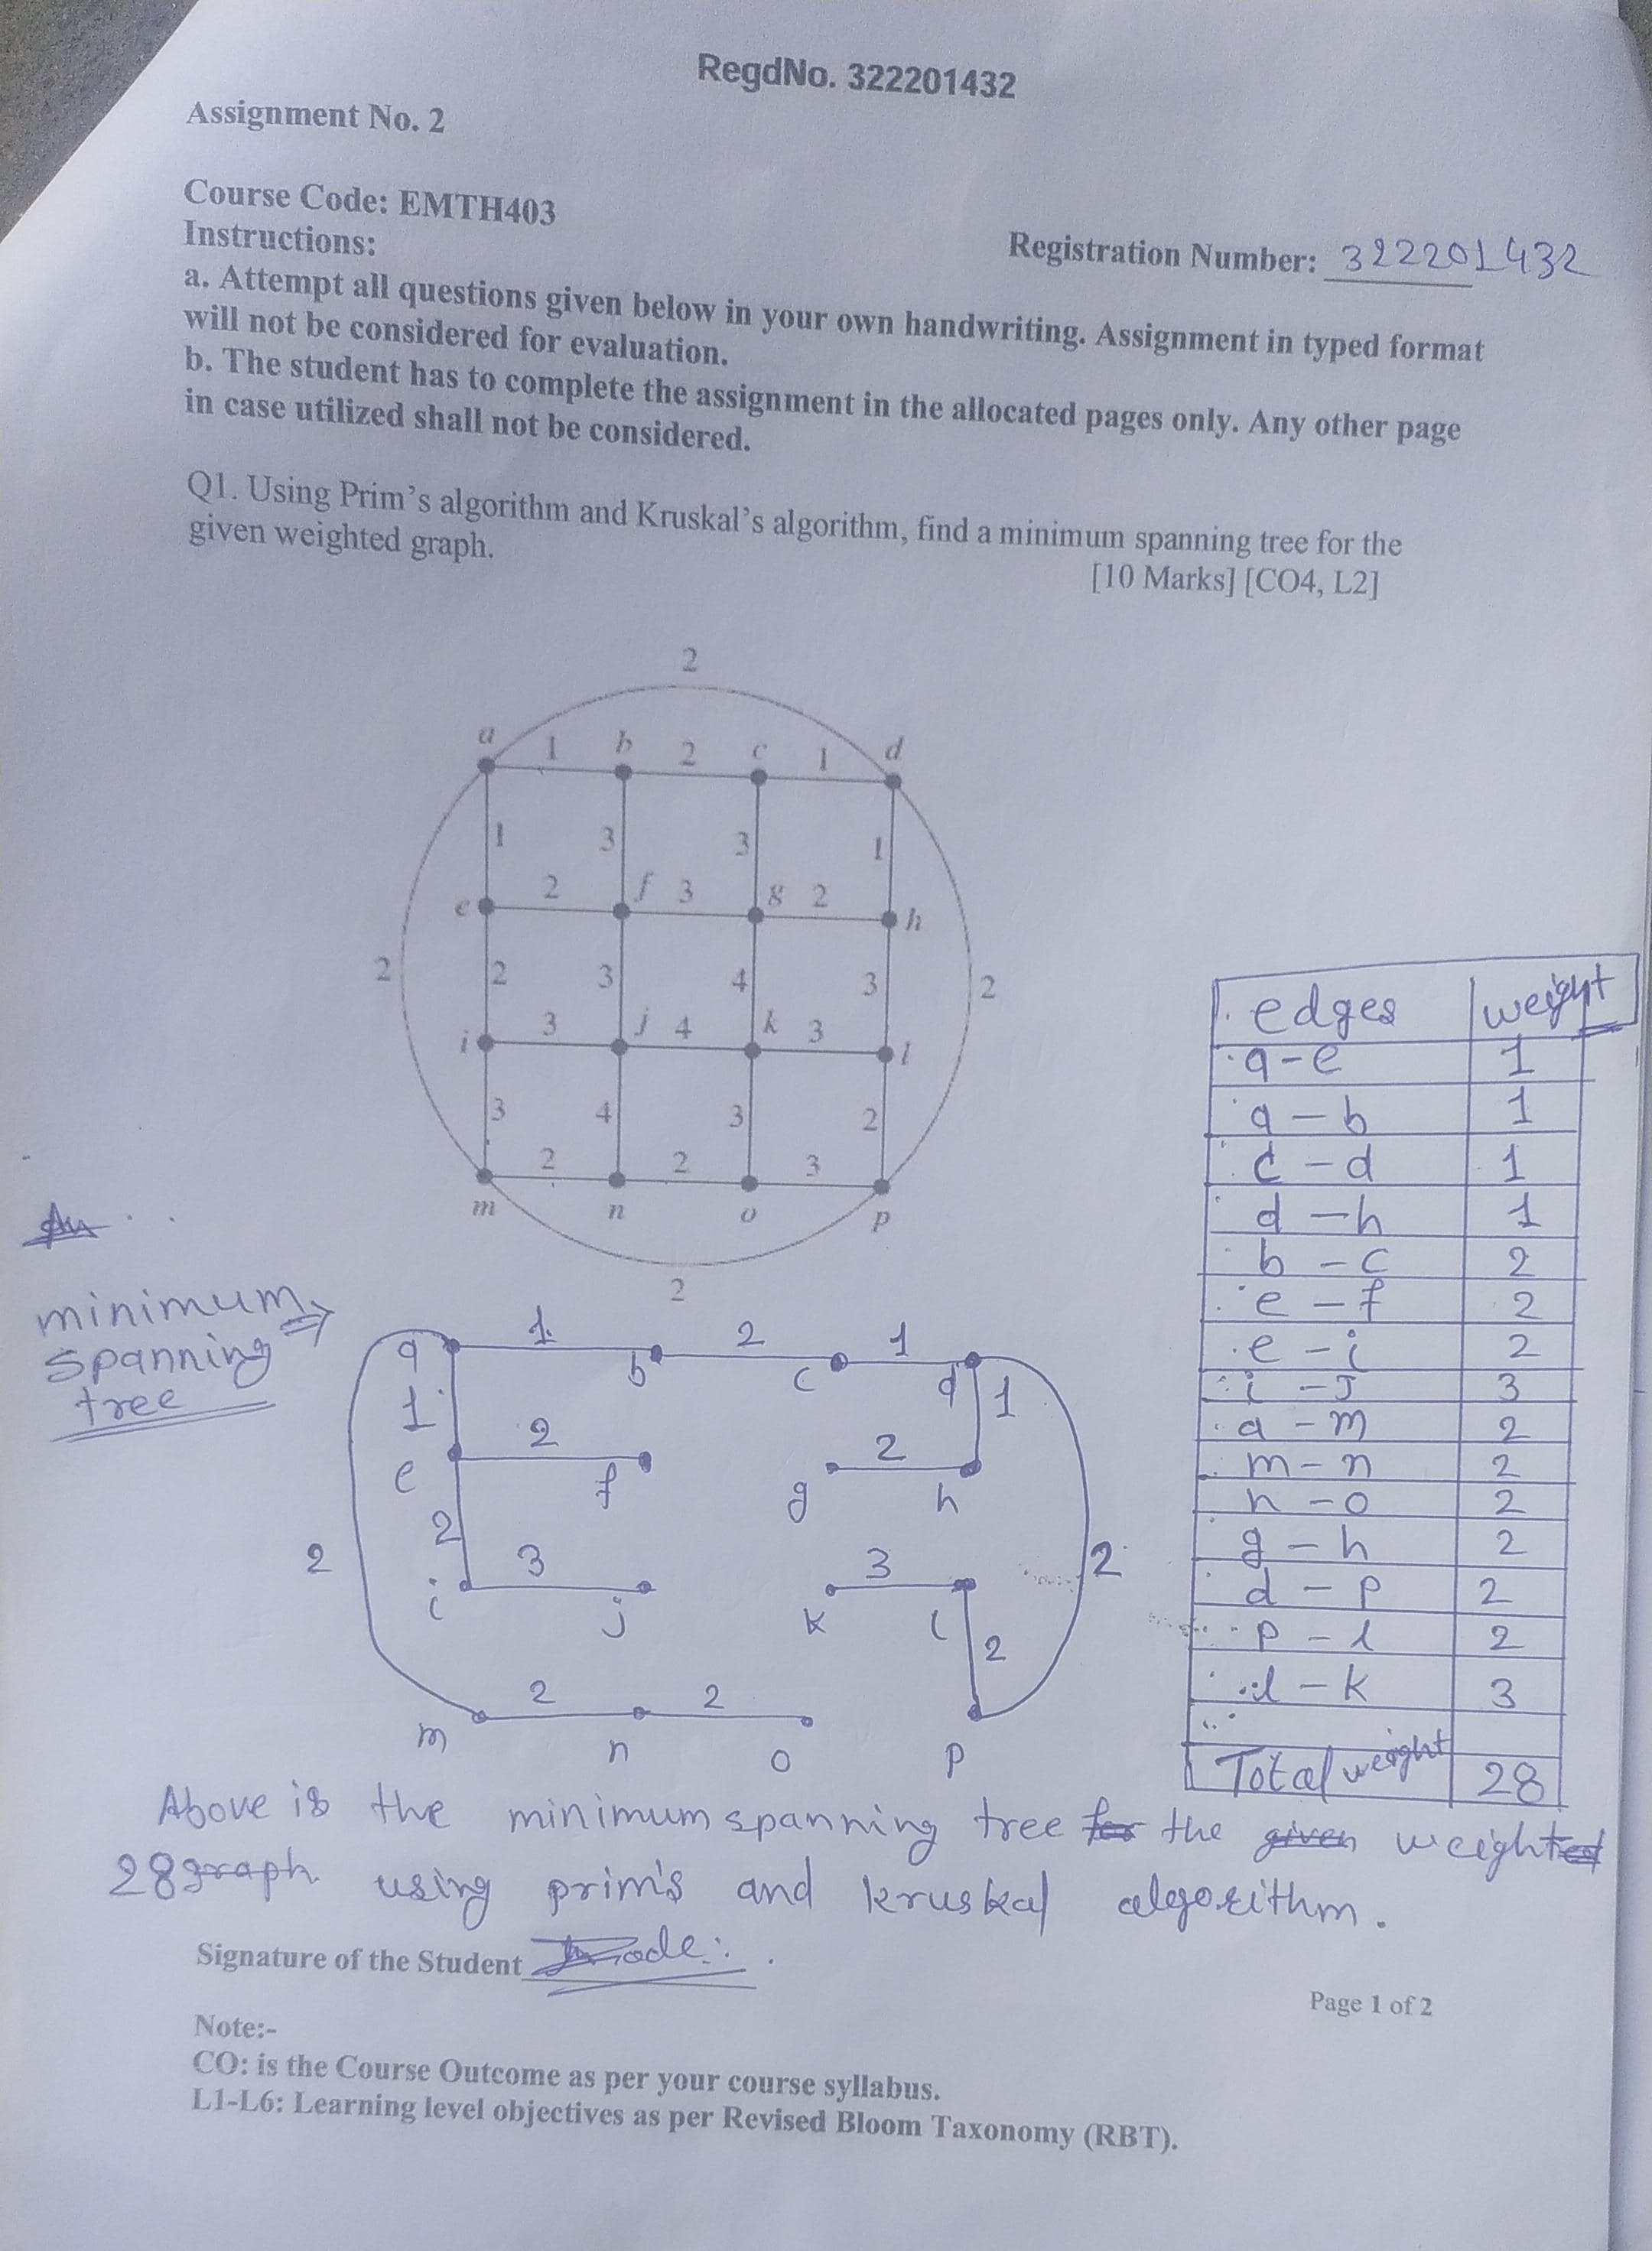 RegdNo. 322201432
Assignment No. 2
Course Code: EMTH403
Instructions:
Registration Number: 322201432
a. Attempt all questions given below in your own handwriting. Assignment in typed format
will not be considered for evaluation.
b. The student has to complete the assignment in the allocated pages only. Any other page
in case utilized shall not be considered.
Q1. Using Prim's algorithm and Kruskal's algorithm, find a minimum spanning tree for the
given weighted graph.
[10 Marks] [CO4, L2]
2
a 1 b 2 c 1 d
1 3 3 1
e 2 f 3 g 2 h
2 2 3 4 3 2
i 3 j 4 k 3 l
3 4 3 2
2 2 3
m n o p
2
edges weight
a-e 1
a-b 1
c-d 1
d-h 1
b-c 2
e-f 2
e-i 2
i-j 3
a-m 2
m-n 2
n-o 2
g-h 2
d-p 2
p-l 2
l-k 3
Total weight 28
minimum
spanning
tree
a 1 b 2 c 1 d
1 1
e 2 f g 2 h
2 2 2
i 3 j k 3 l
2
2 2
m n o p
Above is the minimum spanning tree for the given weighted
28 graph using prim's and kruskal algorithm.
Signature of the Student
Page 1 of 2
Note:-
CO: is the Course Outcome as per your course syllabus.
L1-L6: Learning level objectives as per Revised Bloom Taxonomy (RBT).